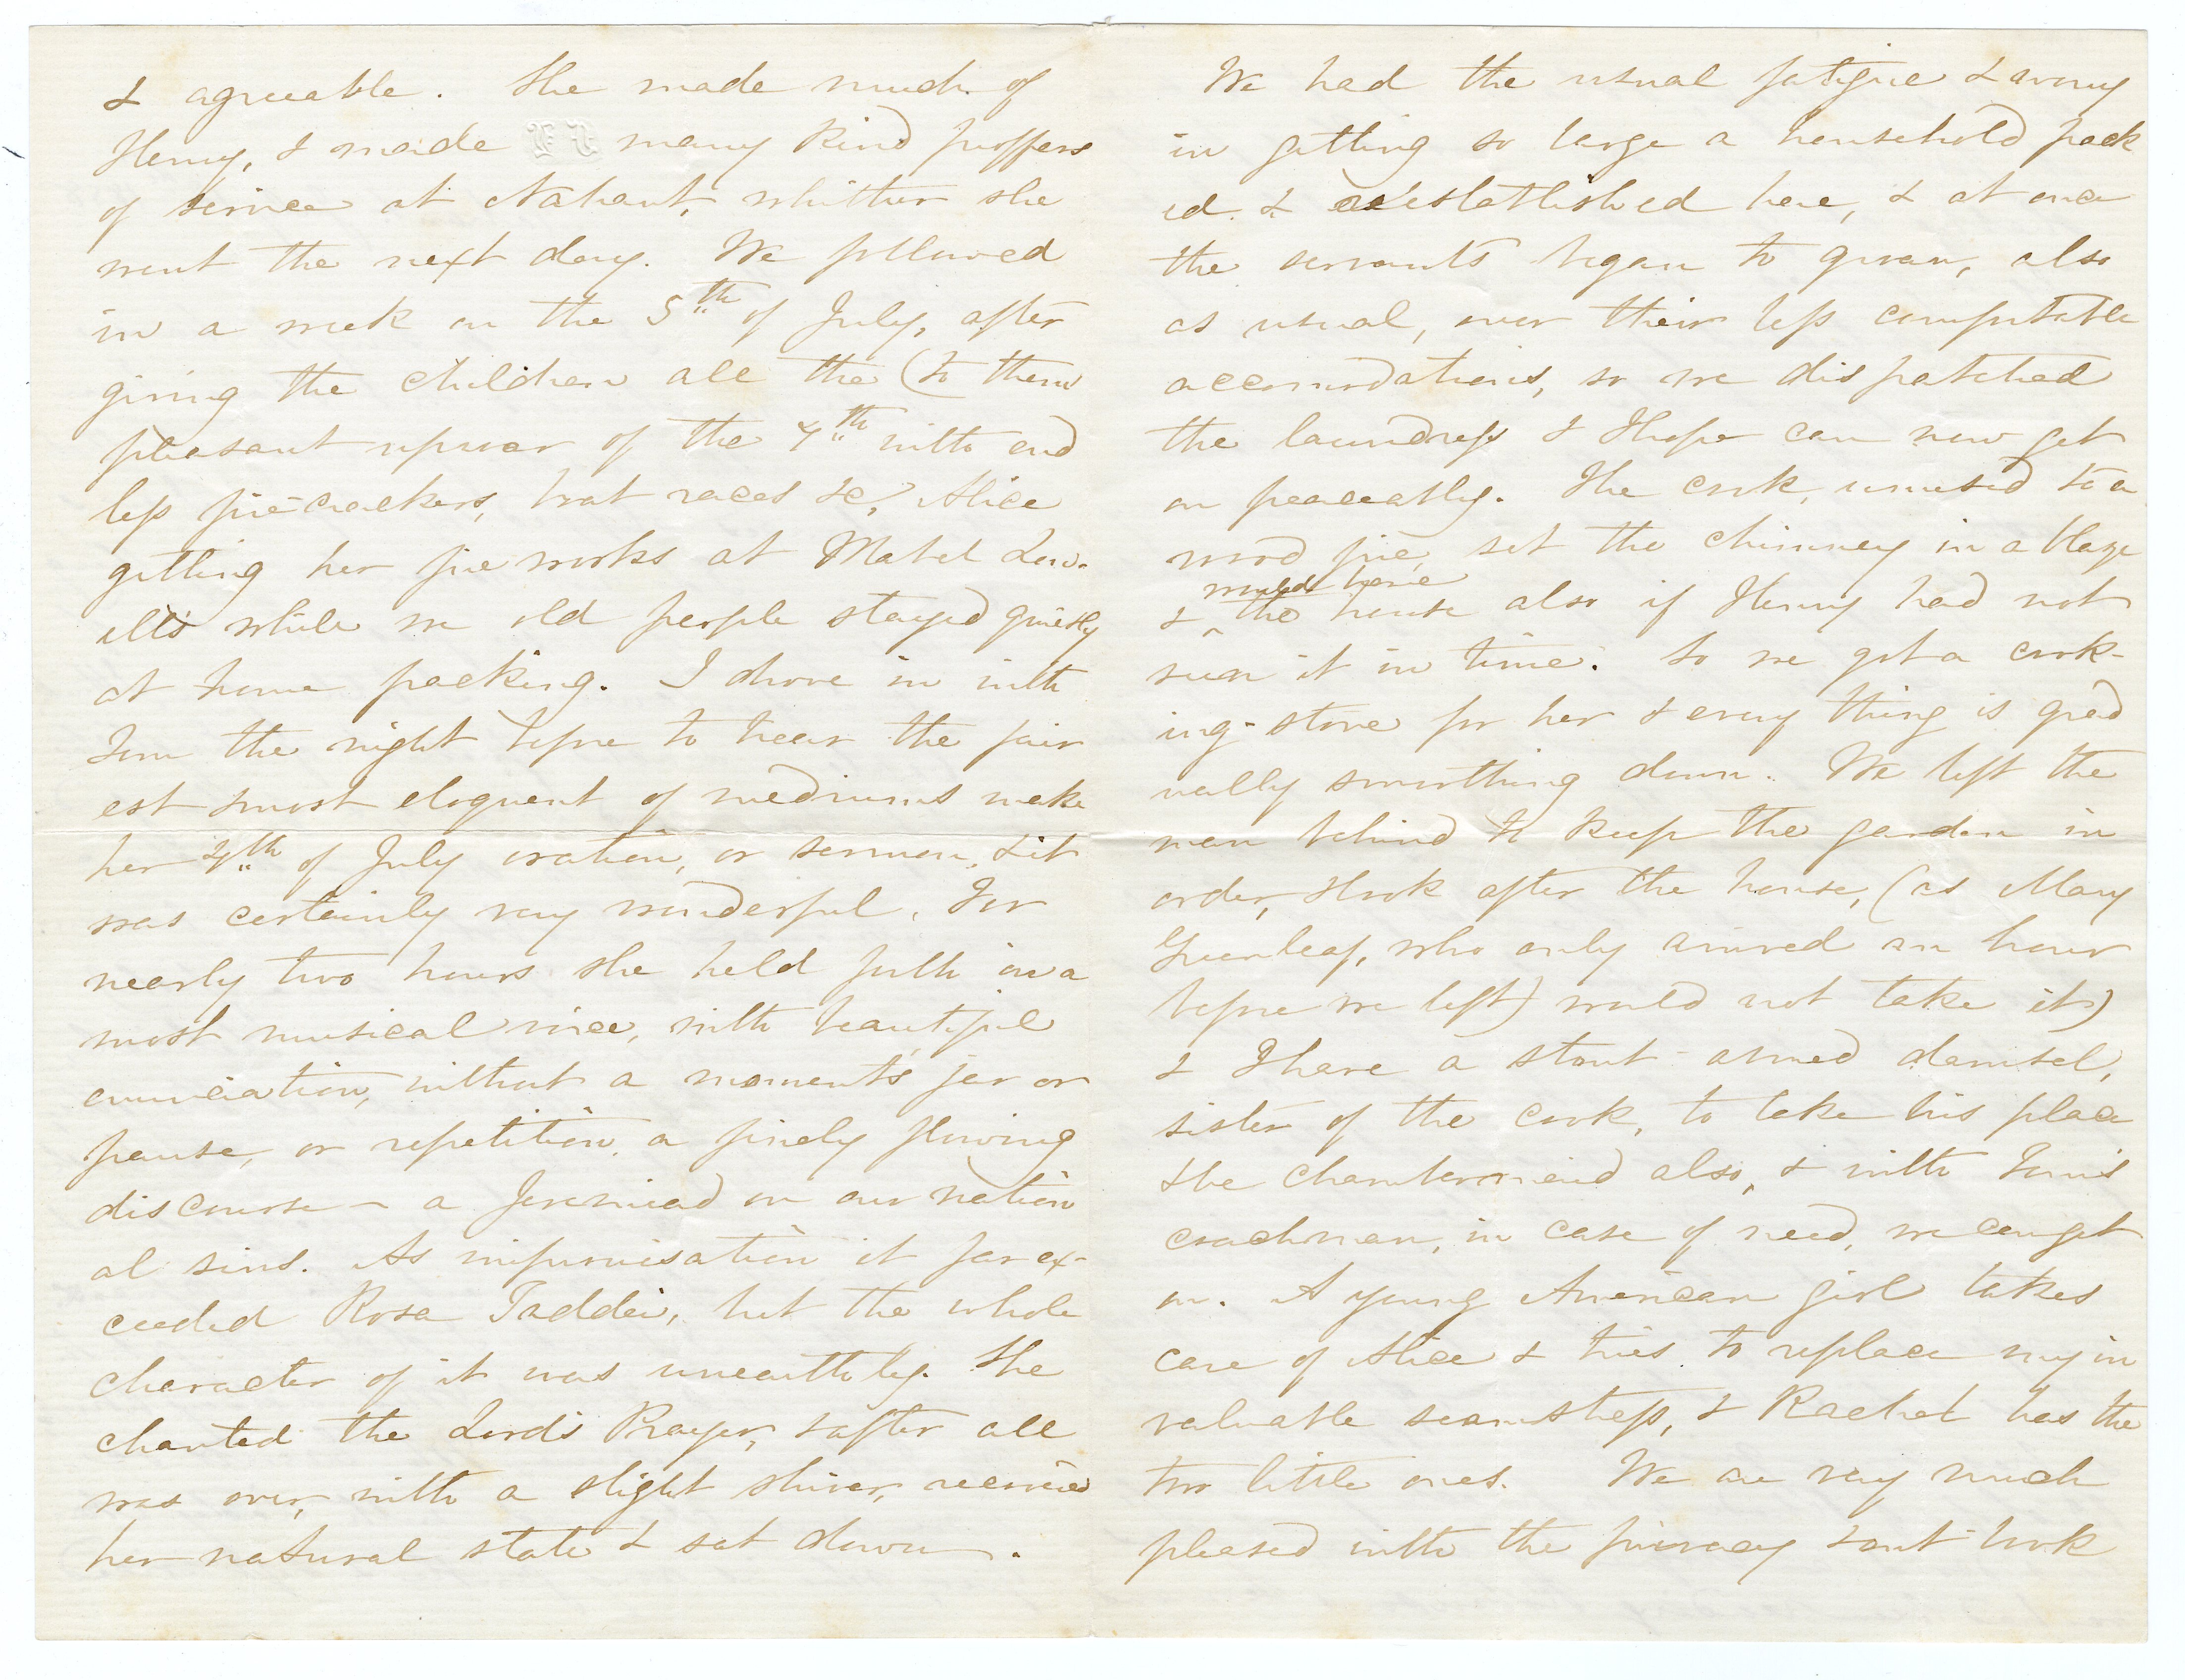 & agreeable. She made much of
Henry, & made many kind proffers
of service at Nahant, whither she
went the next day. We followed
in a week on the 5th of July, after
giving the children all the (to them
pleasant uproar of the 4th with end
less fire-crackers, boat races &c, Alice
getting her fire works at Mabel Low-
ell's while we old people stayed quietly
at home packing. I drove in with
Tom the night before to hear the fair
est & most eloquent of mediums make
her 4th of July oration, or sermon, & it
was certainly very wonderful. For
nearly two hours she held forth in a
most musical voice, with beautiful
enunciation, without a moment's jar or
pause, or repetition, a finely flowing
discourse – a Jeremiad on our nation
al sins. As improvisation it far ex-
ceeded Rosa Taddei, but the whole
character of it was unearthly. She
chanted the Lord's Prayer, & after all
was over, with a slight shiver, received
her natural state & sat down.
We had the usual fatigue & worry
in getting so large a household pack
ed & established here, & at once
the servants began to groan, also
as usual, over their less comfortable
accomodations, so we dispatched
the laundress & I hope can now get
on peaceably. The cook, unused to a
wood fire, set the chimney in a blaze
would have
& ^ the house also if Henry had not
seen it in time. So we got a cook-
ing-stove for her & every thing is grad
ually smoothing down. We left the
man behind to keep the garden in
order, & look after the house, (as Mary
Greenleaf, who only arrived an hour
before we left) would not take it)
& I have a stout-armed damsel,
sister of the cook, to take his place
& the chambermaid also, & with Tom's
coachman, in case of need, we can get
on. A young American girl takes
care of Alice & tries to replace my in
valuable seamstress, & Rachel has the
two little ones. We are very much
pleased with the privacy & out-look